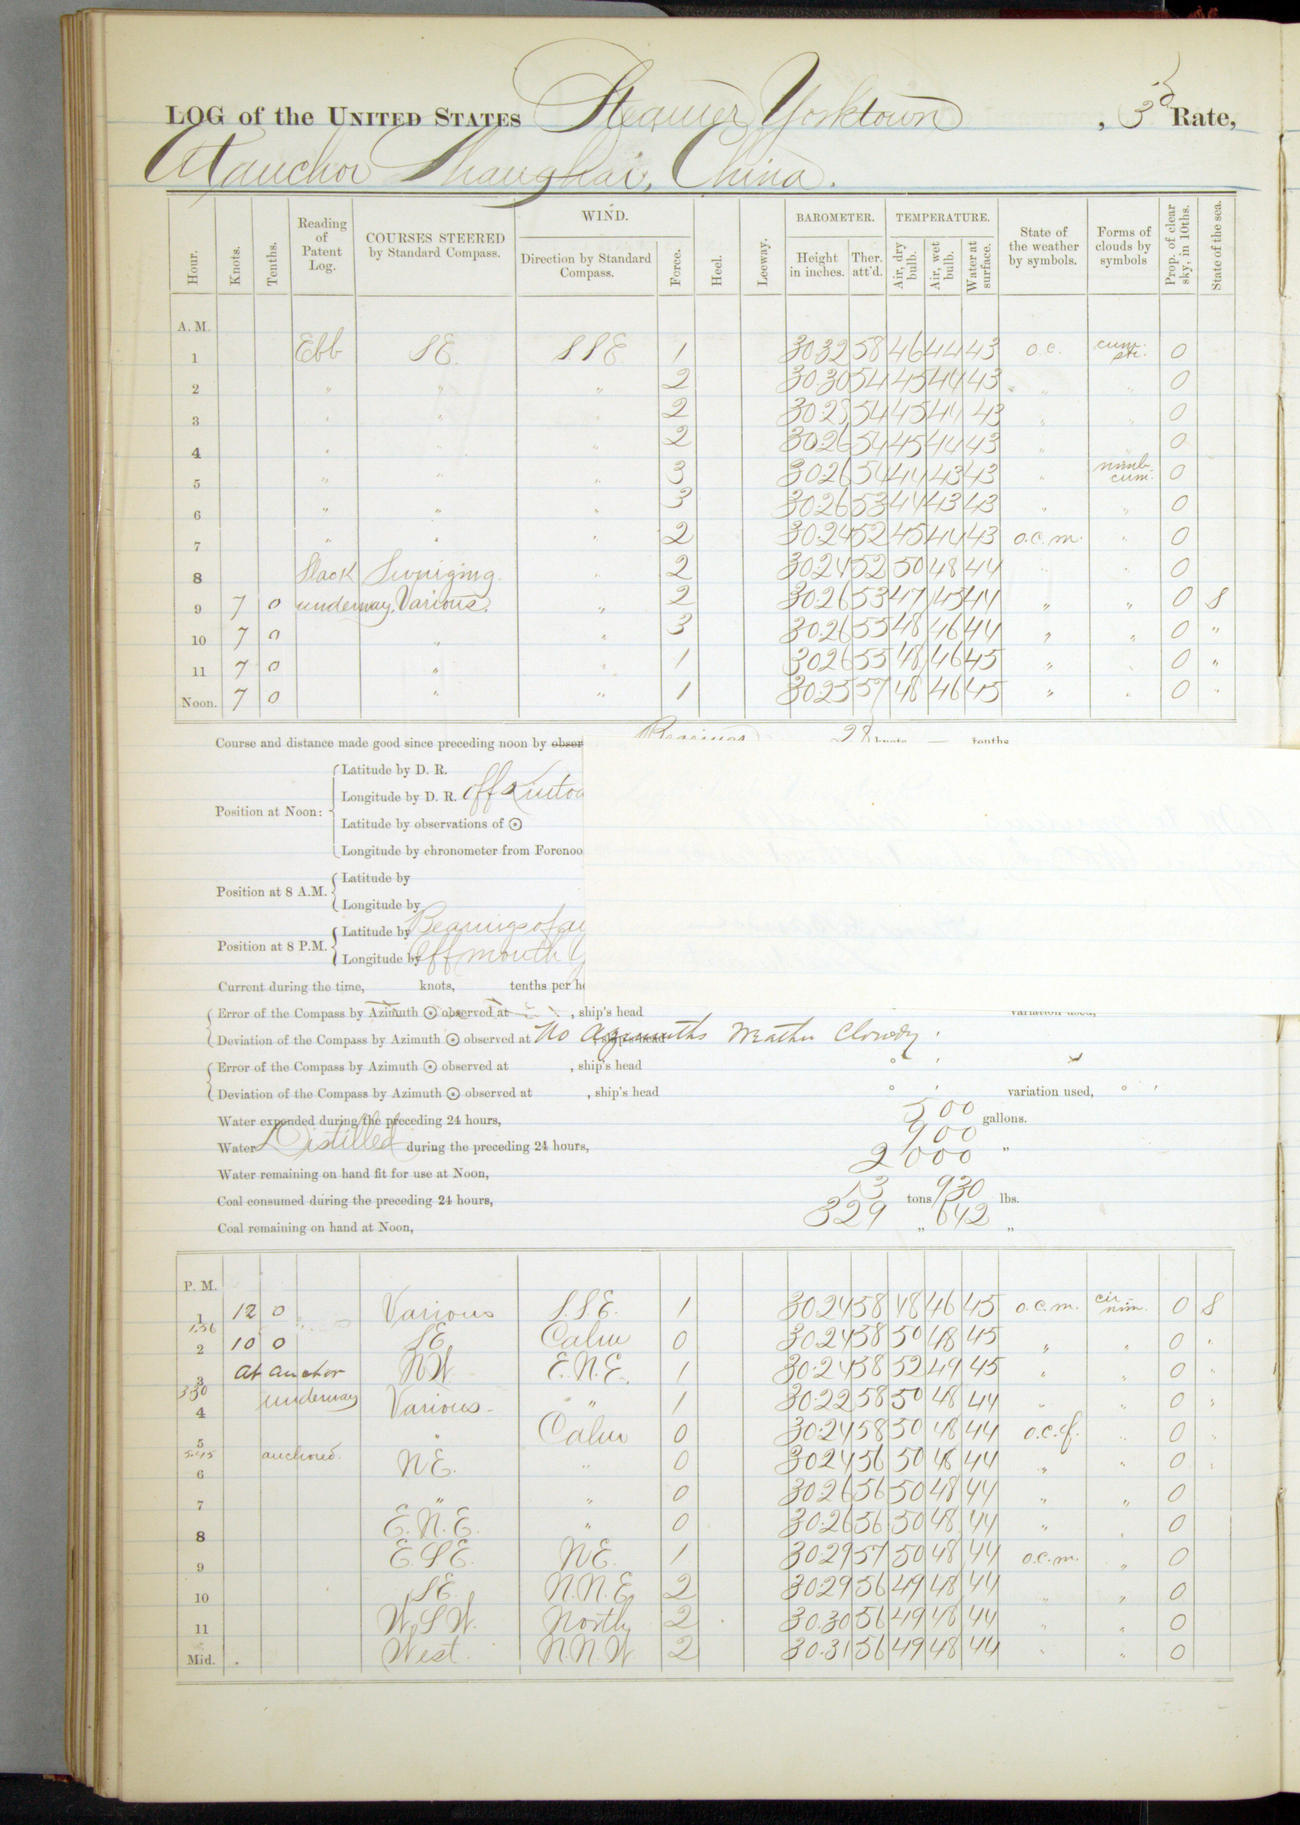 LOG of the UNITED STATES Steamer Yorktown, 3d Rate,
At anchor Shanghai, China.
Hour. Knots. Tenths. Reading of Patent Log. COURSES STEERED by Standard Compass. WIND. Direction by Standard Compass. Force. Heel. Leeway. BAROMETER. Height in inches. Ther. att'd. TEMPERATURE. Air, dry bulb. Air, wet bulb. Water at surface. State of the weather by symbols. Forms of clouds by symbols Prop. of clear sky, in 10ths. State of the sea.
A. M.
1 Ebb SE. SSE 1 30.32 58 46 44 43 o.c. cum. str. 0
2 " " " 2 30.30 54 45 44 43 " " 0
3 " " " 2 30.28 54 45 44 43 " " 0
4 " " " 2 30.26 54 45 44 43 " " 0
5 " " " 3 30.26 54 44 43 43 " nimb. cum. 0
6 " " " 3 30.26 53 44 43 43 " " 0
7 " " " 2 30.24 52 45 44 43 o.c.m. " 0
8 Slack Swinging. " 2 30.24 52 50 48 44 " " 0
9 7 0 underway. Various. " 2 30.26 53 47 45 44 " " 0 S
10 7 0 " " 3 30.26 55 48 46 44 " " 0 "
11 7 0 " " 1 30.26 55 48 46 45 " " 0 "
Noon. 7 0 " " 1 30.25 57 48 46 45 " " 0 "
Course and distance made good since preceding noon by obser Bearings 28 knots — tenths
Position at Noon:
Latitude by D. R.
Longitude by D. R. off
Latitude by observations of ☉
Longitude by chronometer from Forenoo
Position at 8 A.M.
Latitude by
Longitude by
Position at 8 P.M.
Latitude by Bearings of
Longitude by Off mouth
Current during the time, knots, tenths per h
Error of the Compass by Azimuth ☉ observed at , ship's head variation used,
Deviation of the Compass by Azimuth ☉ observed at No Azimuths Weather Cloudy. , ship's head
Error of the Compass by Azimuth ☉ observed at , ship's head ° '
Deviation of the Compass by Azimuth ☉ observed at , ship's head ° ' variation used, ° '
Water expended during the preceding 24 hours, 500 gallons.
Water Distilled during the preceding 24 hours, 900 "
Water remaining on hand fit for use at Noon, 2000
Coal consumed during the preceding 24 hours, 13 tons 930 lbs.
Coal remaining on hand at Noon, 329 " 642 "
P. M.
1 12 0 Various S.S.E. 1 30.24 58 48 46 45 o.c.m. cir. nim. 0 S
1.56
2 10 0 SE. Calm 0 30.24 58 50 48 45 " " 0 "
3 at anchor NW. E.N.E. 1 30.24 58 52 49 45 " " 0 "
3.30
4 underway Various " 1 30.22 58 50 48 44 " " 0 "
5 " Calm 0 30.24 58 50 48 44 o.c.f. " 0 "
5.45
6 anchored. NE. " 0 30.24 56 50 48 44 " " 0 "
7 " " 0 30.26 56 50 48 44 " " 0
8 E.N.E. " 0 30.26 56 50 48 44 " " 0
9 E.S.E. NE. 1 30.29 57 50 48 44 o.c.m. " 0
10 SE. N.N.E 2 30.29 56 49 48 44 " " 0
11 W.S.W. North 2 30.30 56 49 48 44 " " 0
Mid. West. N.N.W. 2 30.31 56 49 48 44 " " 0